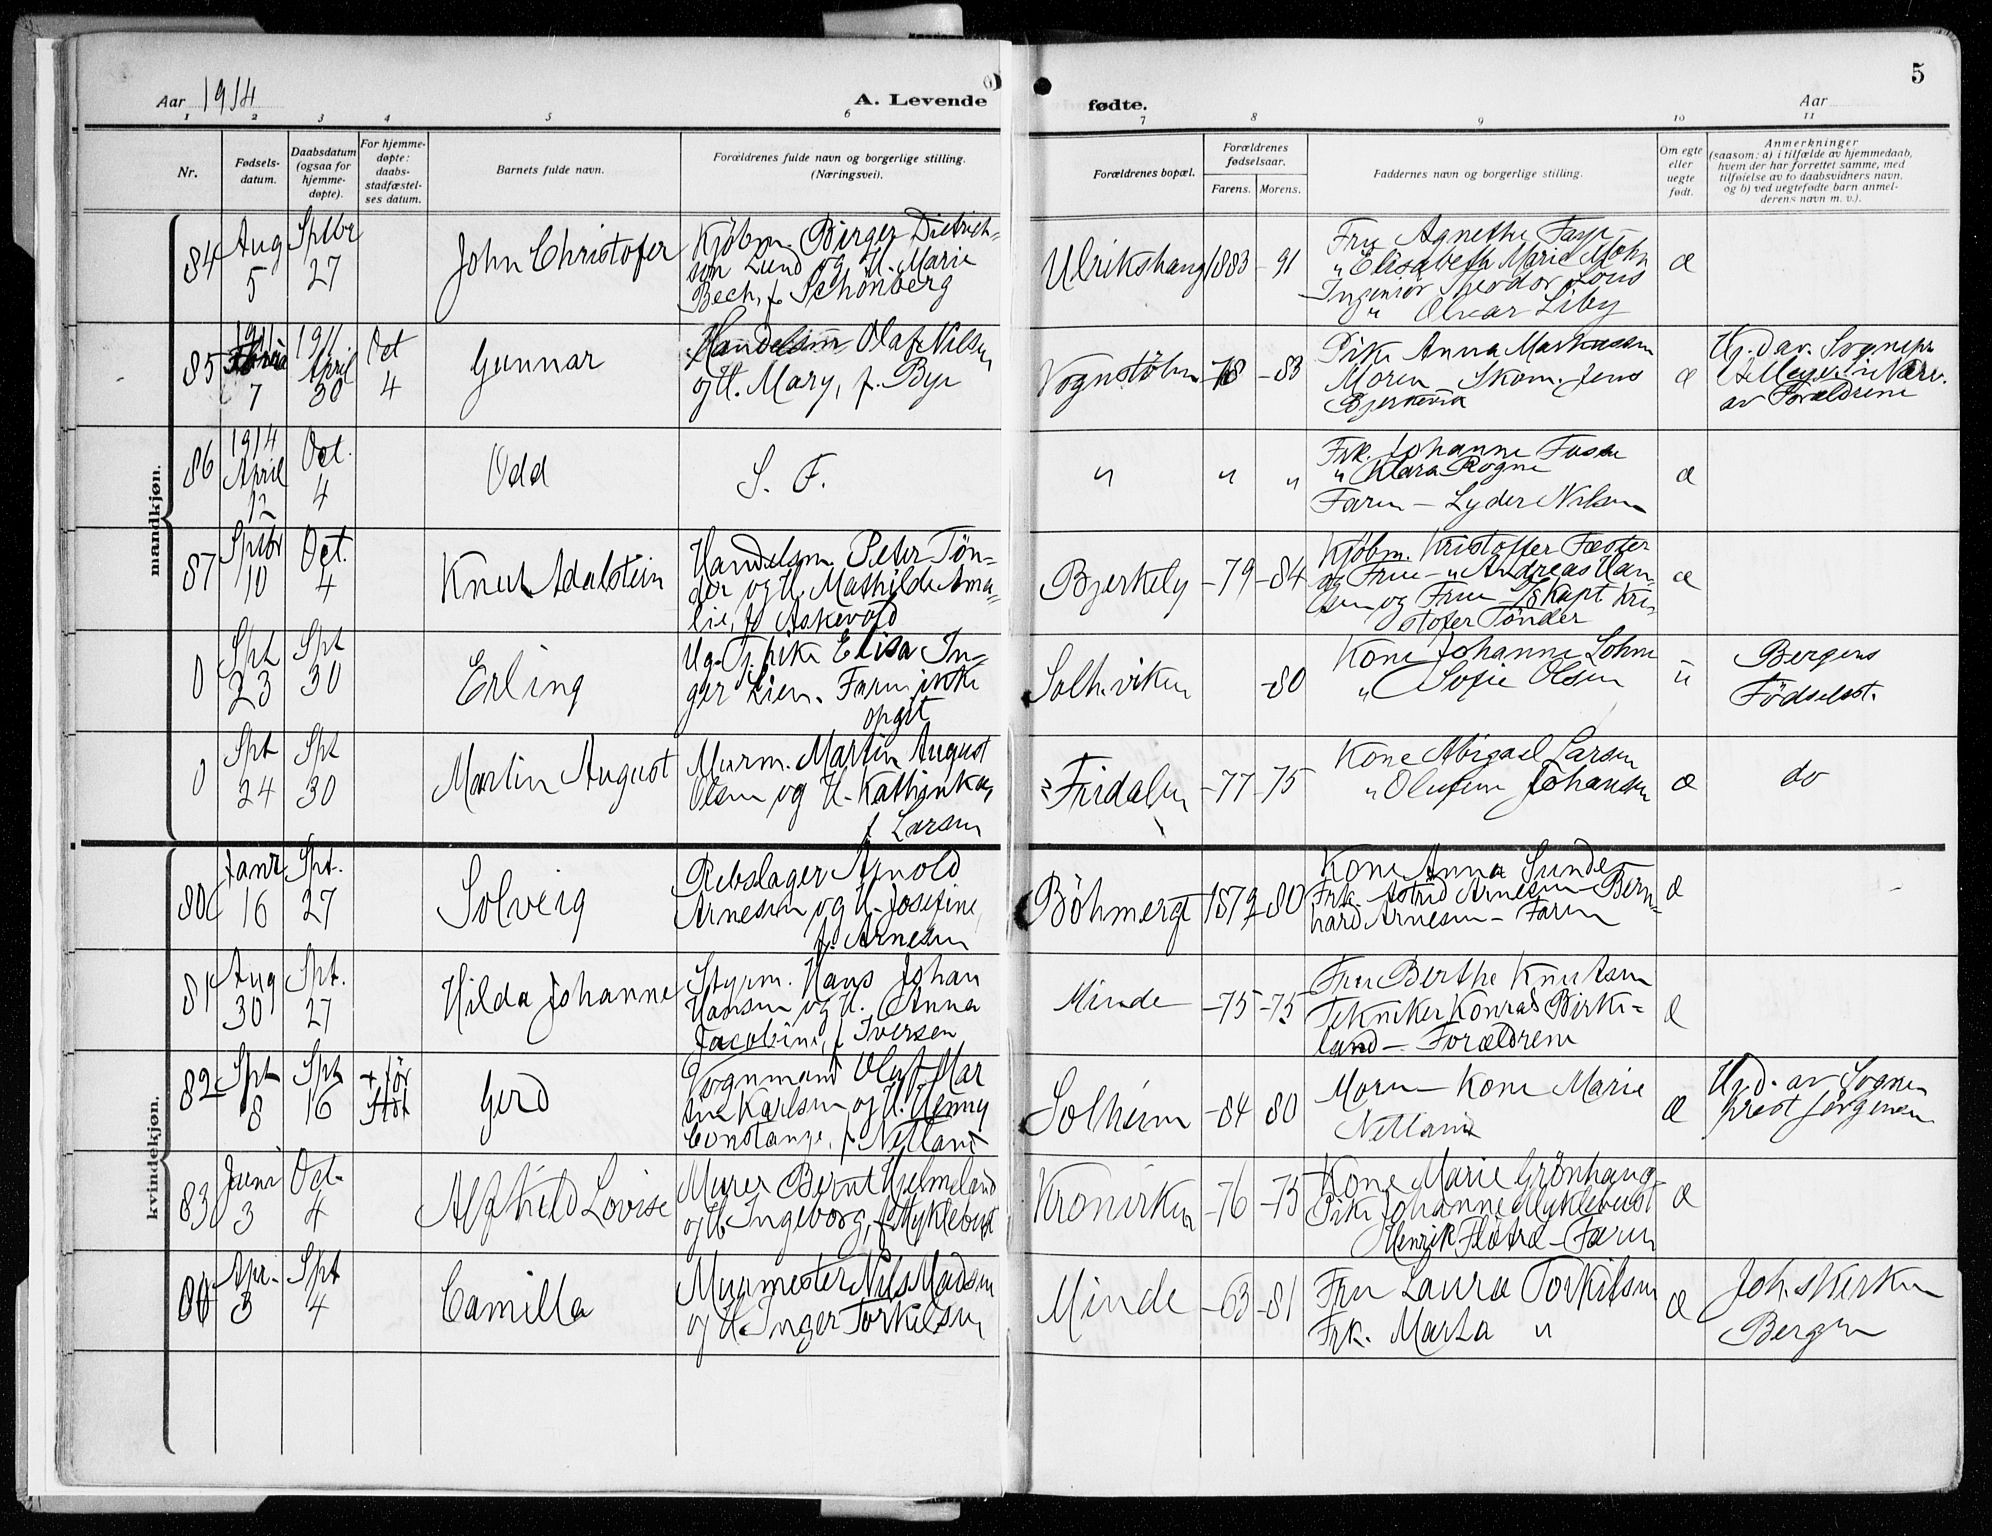 Aar 1914
A. Levende
fødte.
Aar
5
1 2 3 4 5 6 7 8 9 10 11
Nr.
Fødsels-
datum.
Daabsdatum
(ogsaa for
hjemme-
døpte).
For hjemme-
døpte:
daabs-
stadfæstel-
ses datum.
Barnets fulde navn.
Forældrenes fulde navn og borgerlige stilling.
(Næringsvei).
Forældrenes bopæl.
Forældrenes
fødselsaar.
Farens. Morens.
Faddernes navn og borgerlige stilling.
Om egte
eller
uegte
født.
Anmerkninger
(saasom: a) i tilfælde av hjemmedaab,
hvem der har forrettet samme, med
tilføielse av to daabsvidners navn,
og b) ved uegtefødte barn anmel-
derens navn m. v.).
mandkjøn.
84
Aug
5
Sptbr
27
John Christofer
Kjøbm. Birger Dietrich-
son Lund og H. Marie
Bech, f. Schönberg
Ulrikshaug
1883 -91
Fru Agnethe
" Elisabeth Marie Mohn
Ingeniør Theodor
" Olvar Liby
æ
85
1911
7
1911
April
30
Oct
4
Gunnar
Handelsm Olaf Nilsen
og H. Mary, f. Bye
Vognstølen
-78 -83
Pike Anna Markussen
Moren - Skom. Jens
Bjerkevik
æ
Hj. d av. Sognepr
Meyer i Narv.
av Forældrene
86
1914
April
12
Oct.
4
Odd
S. F.
" " "
Frk. Johanne Fosse
" Klara Rogne
Faren - Lyder Nilsen
æ
87
Sptbr
10
Oct.
4
Knut Adalstein
Handelsm. Peter Tøn-
der og H. Mathilde Ama-
lie, f. Askevold
Bjerkely
-79 -84
Kjøbm. Kristoffer Fæster
og Frue - " Andreas Han-
sen og Frue - Skapt Kri-
stofer Tønder
æ
0
Spt
23
Spt
30
Erling
Ug. Tj. pike Elisa In-
ger Lien. Faren ikke
opgit
Solh.viken
-80
Kone Johanne Lohne
" Sofie Olsen
u
Bergens
Fødselsst.
0
Spt
24
Spt
30
Martin August
Murm. Martin August
Olsen og H. Kathinka,
f Larsen
Fridalen
-77 -75
Kone Abigael Larsen
" Olufine Johansen
æ
do
kvindekjøn.
80
Janr
16
Spt.
27
Solveig
Rebslager Arnold
Arnesen og H. Josefine,
f. Arnesen
Böhmergt
1879 -80
Kone Anna Sunde
Frk. Astrid Arnesen Bern-
hard Arnesen - Faren
æ
81
Aug
30
Spt.
27
Hilda Johanne
Styrm. Hans Johan
Hansen og H. Anna
Jacobine, f Iversen
Minde
-75 -75
Fru Berthe Knutsen
Tekniker Konrad Birke-
land - Forældrene
æ
82
Spt
8
Spt
16
+ før
Stdf
Gerd
Vognmand Oluf Mar
Karlsen og H. Henny
Constanze, f. Netland
Solheim
-84 80
Moren - Kone Marie
Netland
æ
Hj. d. av Sogne-
prest Jörgensen
83
Juni
3
Oct.
4
Alfhild Lovise
Murer Bernt Hjelmeland
og H. Ingeborg, f Myklebust
Kroniviken
-76 -75
Kone Marie Grönhaug
Pike Johanne Myklebust
Henrik Flåtra - Faren
æ
Apr.
3
Spt
4
Camilla
Murmester Nils Madsen
og H. Inger Torkilsen
Minde
-63 -81
Fru Laura Torkilsen
Frk. Marta "
æ
Joh.skirken
Bergen